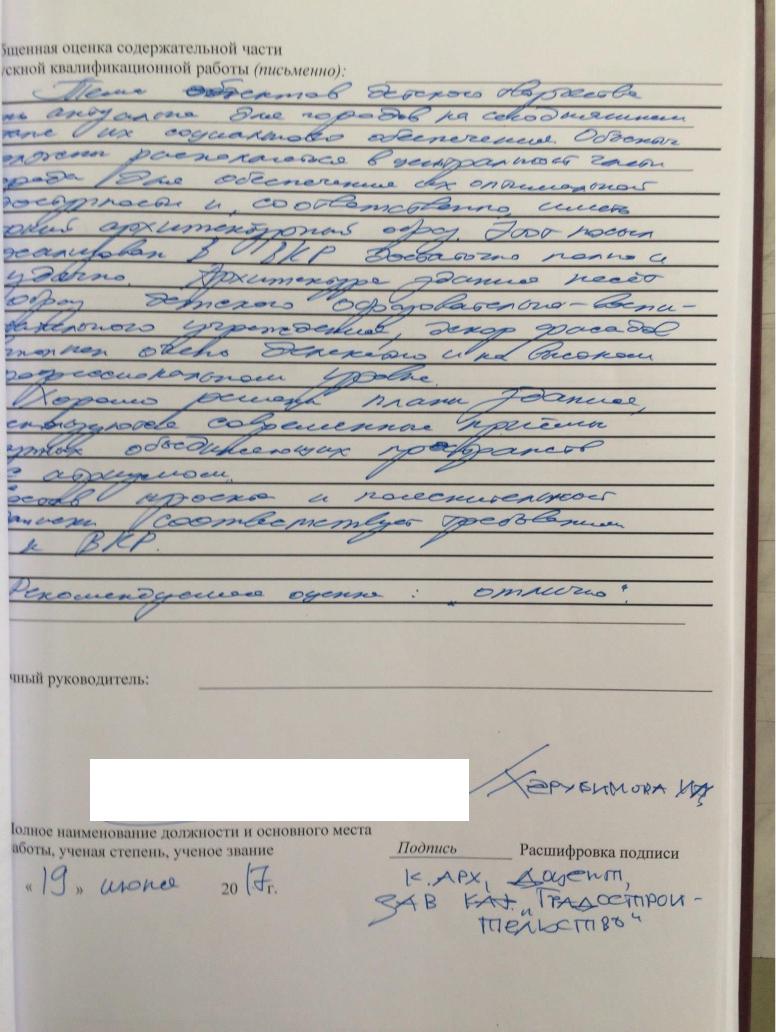 бщенная оценка содержательной части
ускной квалификационной работы (письменно):
Тема объектов детского творчества
нь актуальна для городов на сегодняшнем
тапе их социального обеспечения. Объекты
олжны располагаться в центральной части
орода для обеспечения их оптимальной
доступности и, соответственно, иметь
ркий архитектурный образ. Этот посыл
реализован в ВКР достаточно полно и
удачно. Архитектура здания несёт
образ детского образовательно-воспи-
тательного учреждения, декор фасадов
очень и на высоком
рофессиональном уровне.
Хорошо решены планы здания,
используются современные приёмы
объединяющих пространств
с атриумом.
Состав проекта и пояснительной
записки соответствует требованиям
к ВКР.
Рекомендуемая оценка: "отлично".
чный руководитель:
Херубимова
Полное наименование должности и основного места
аботы, ученая степень, ученое звание
Подпись Расшифровка подписи
« 19 » июня 2017г.
к. арх, доцент,
зав каф. "Градострои-
тельствъ"